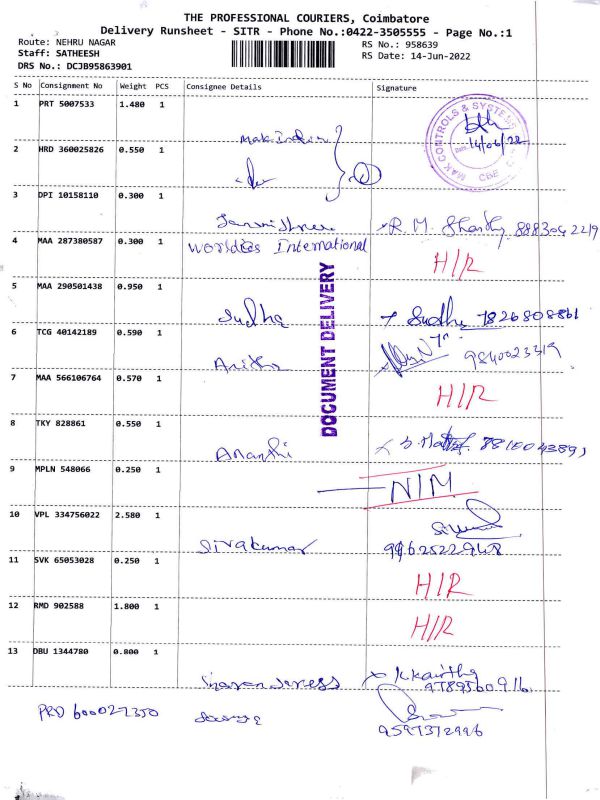 THE PROFESSIONAL COURIERS, Coimbatore
Delivery Runsheet - SITR - Phone No.:0422-3505555 - Page No.:1
Route: NEHRU NAGAR RS No.: 958639
Staff: SATHEESH RS Date: 14-Jun-2022
DRS No.: DCJB95863901
S No Consignment No Weight PCS Consignee Details Signature
1 PRT 5007533 1.480 1
MAK CONTROLS & SYSTEMS
Date
14/06/22
CBE
2 HRD 360025826 0.550 1
3 DPI 10158110 0.300 1
R. M.
4 MAA 287380587 0.300 1 Worldies International H/R
5 MAA 290501438 0.950 1
Sudha Sudha 7826808861
6 TCG 40142189 0.590 1
Anitha 9840023319
7 MAA 566106764 0.570 1 H/R
8 TKY 828861 0.550 1
Ananthi
9 MPLN 548066 0.250 1 N/M
10 VPL 334756022 2.580 1
Sivakumar 9962522948
11 SVK 65053028 0.250 1 H/R
12 RMD 902588 1.800 1 H/R
13 DBU 1344780 0.800 1
PRD 600027350
9597372996
DOCUMENT DELIVERY